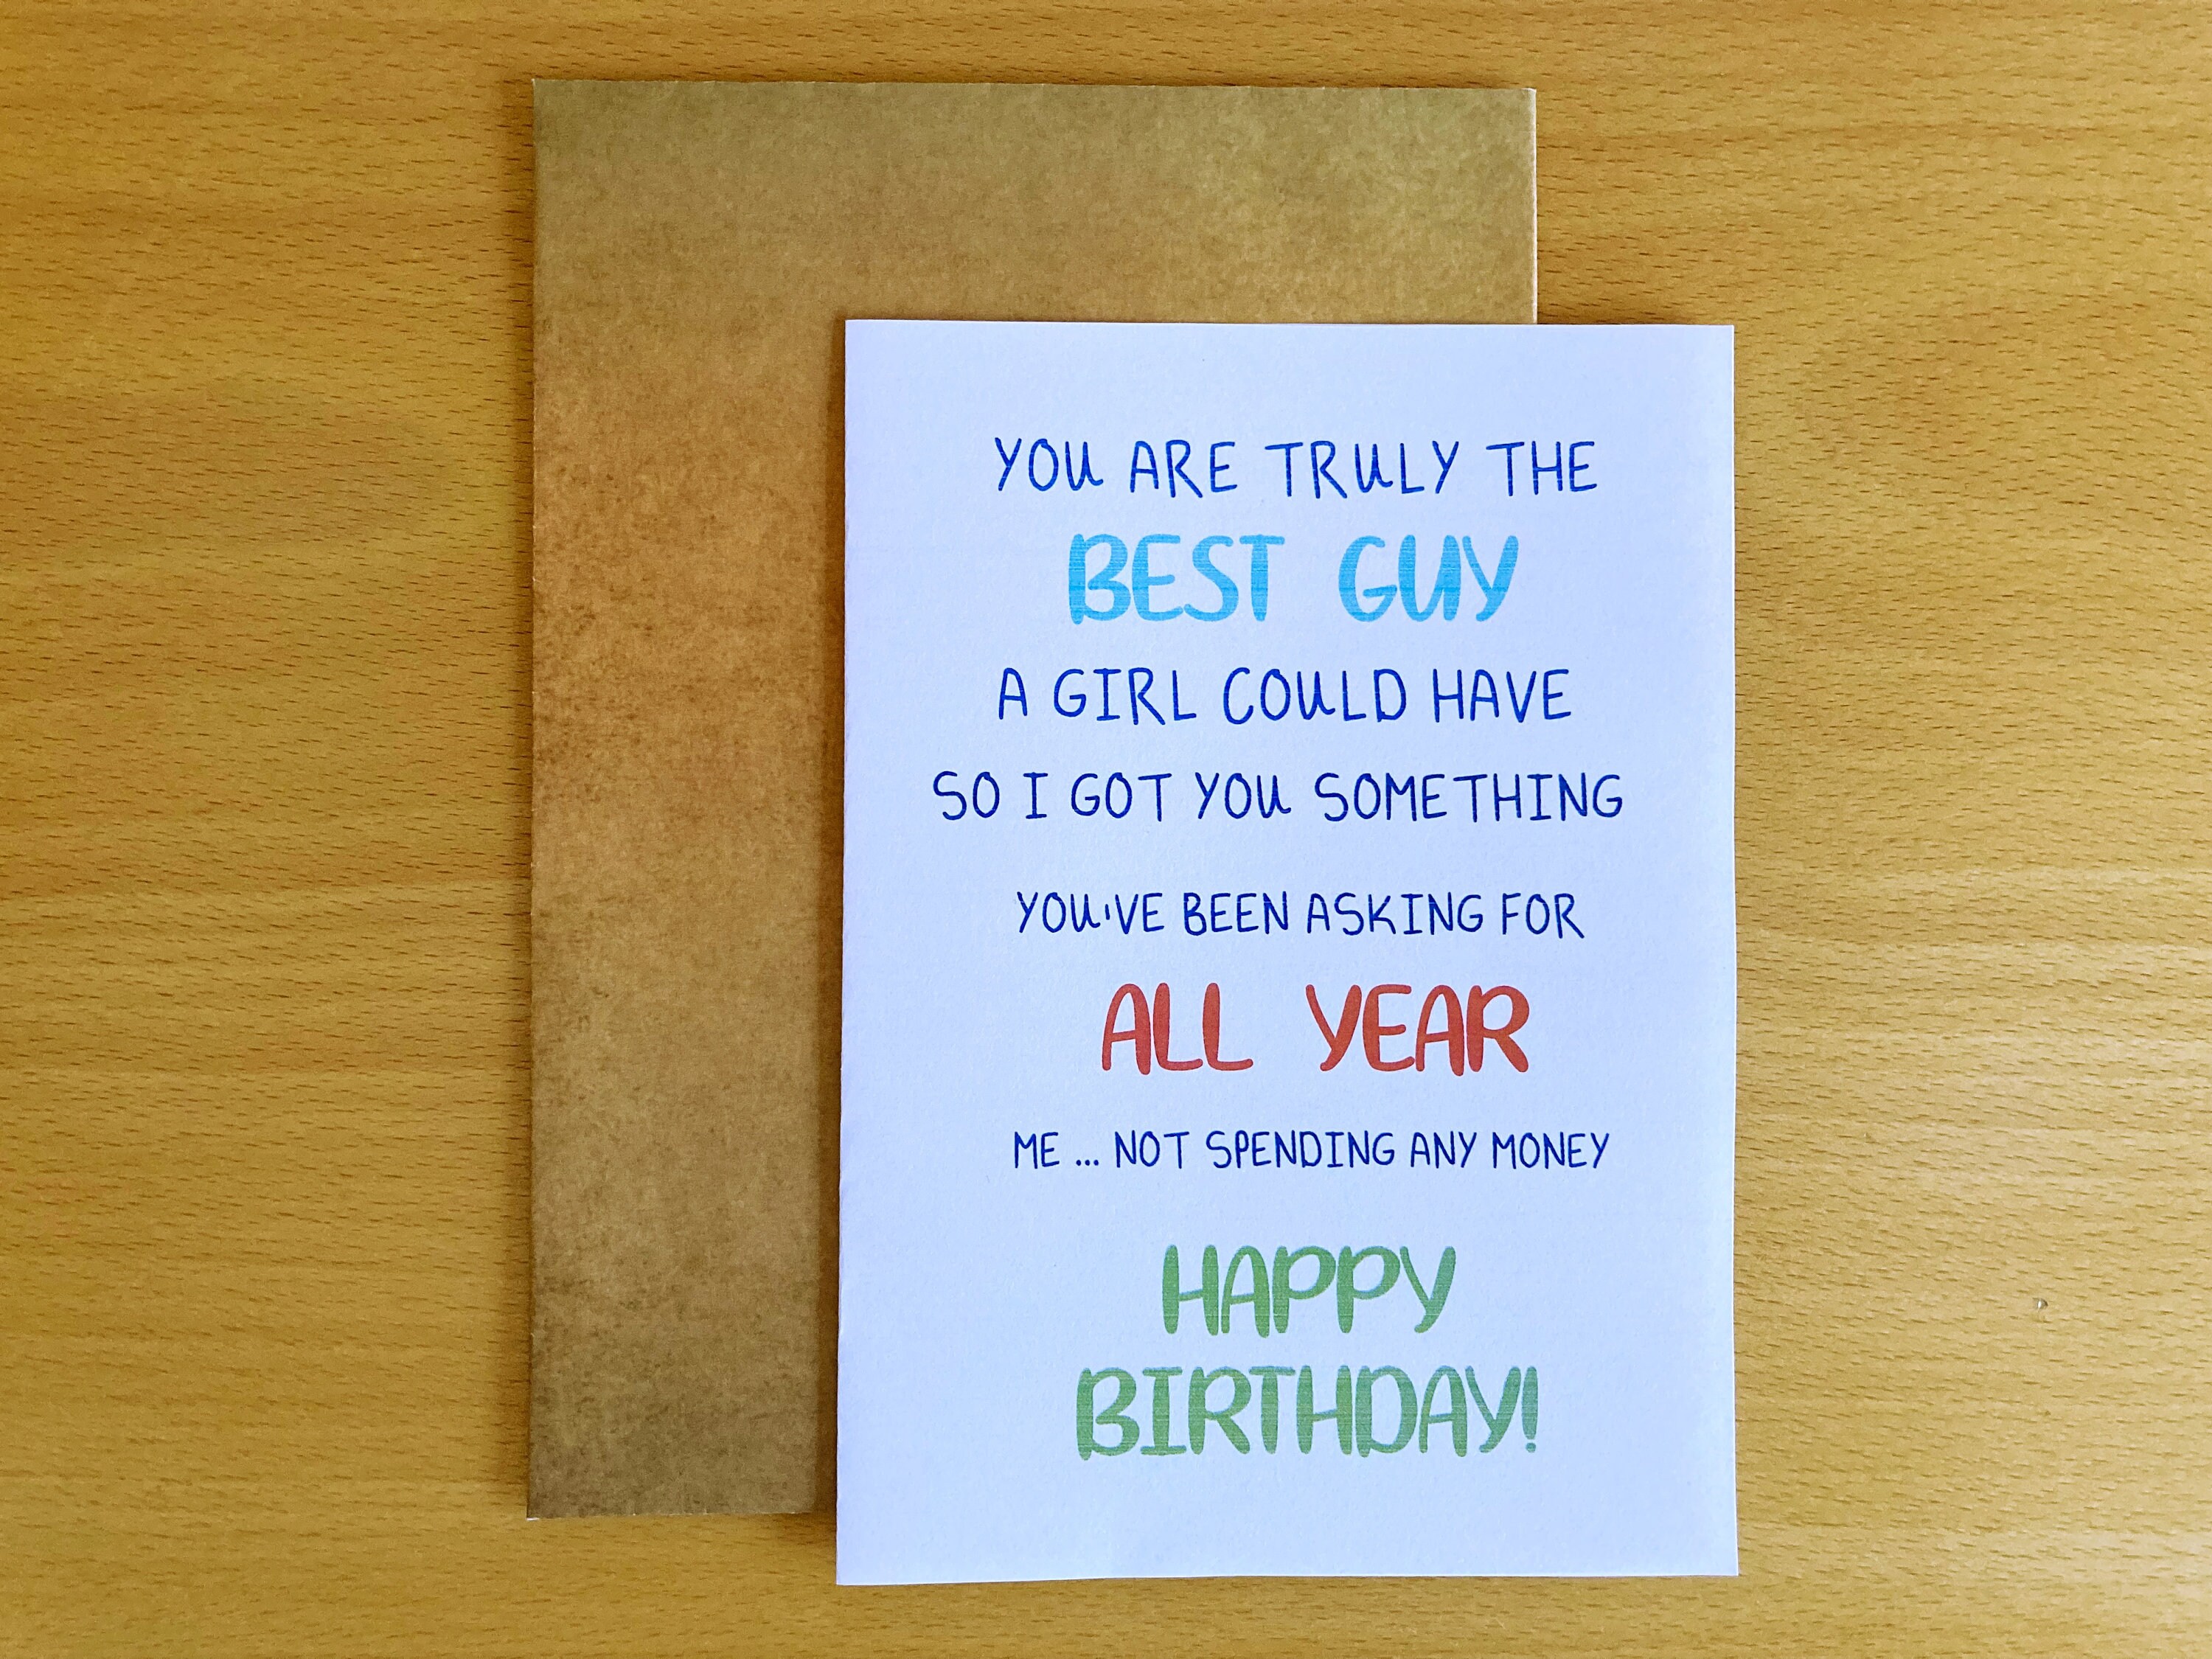 YOU ARE TRULY THE
BEST GUY
A GIRL COULD HAVE
SO I GOT YOU SOMETHING
YOU'VE BEEN ASKING FOR
ALL YEAR
ME ... NOT SPENDING ANY MONEY
HAPPY
BIRTHDAY!